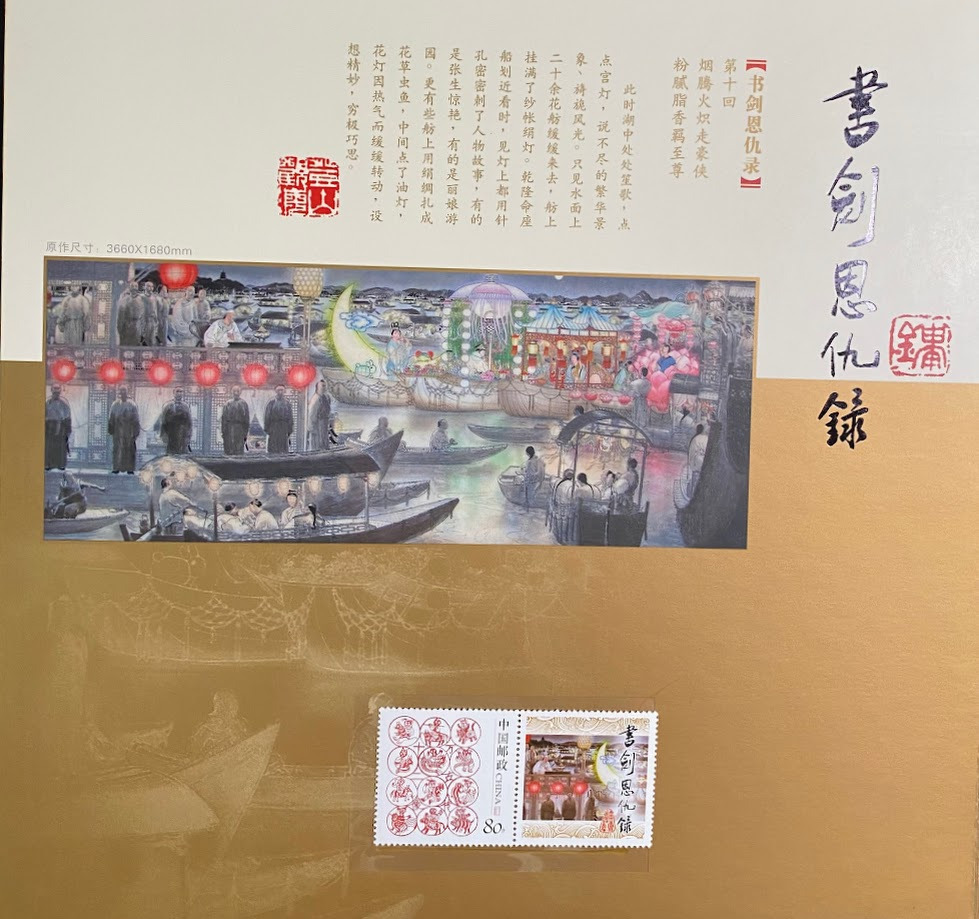 書劍恩仇錄
【书剑恩仇录】
第十回
烟腾火炽走豪侠
粉腻脂香羁至尊
此时湖中处处笙歌，点
点宫灯，说不尽的繁华景
象、旖旎风光。只见水面上
二十余花舫缓缓来去，舫上
挂满了纱帐绢灯。乾隆命座
船划近看时，见灯上都用针
孔密密刺了人物故事，有的
是张生惊艳，有的是丽娘游
园。更有些舫上用绢绸扎成
花草虫鱼，中间点了油灯，
花灯因热气而缓缓转动，设
想精妙，穷极巧思。
原作尺寸：3660X1680mm
中国邮政 CHINA
80分
書劍恩仇錄